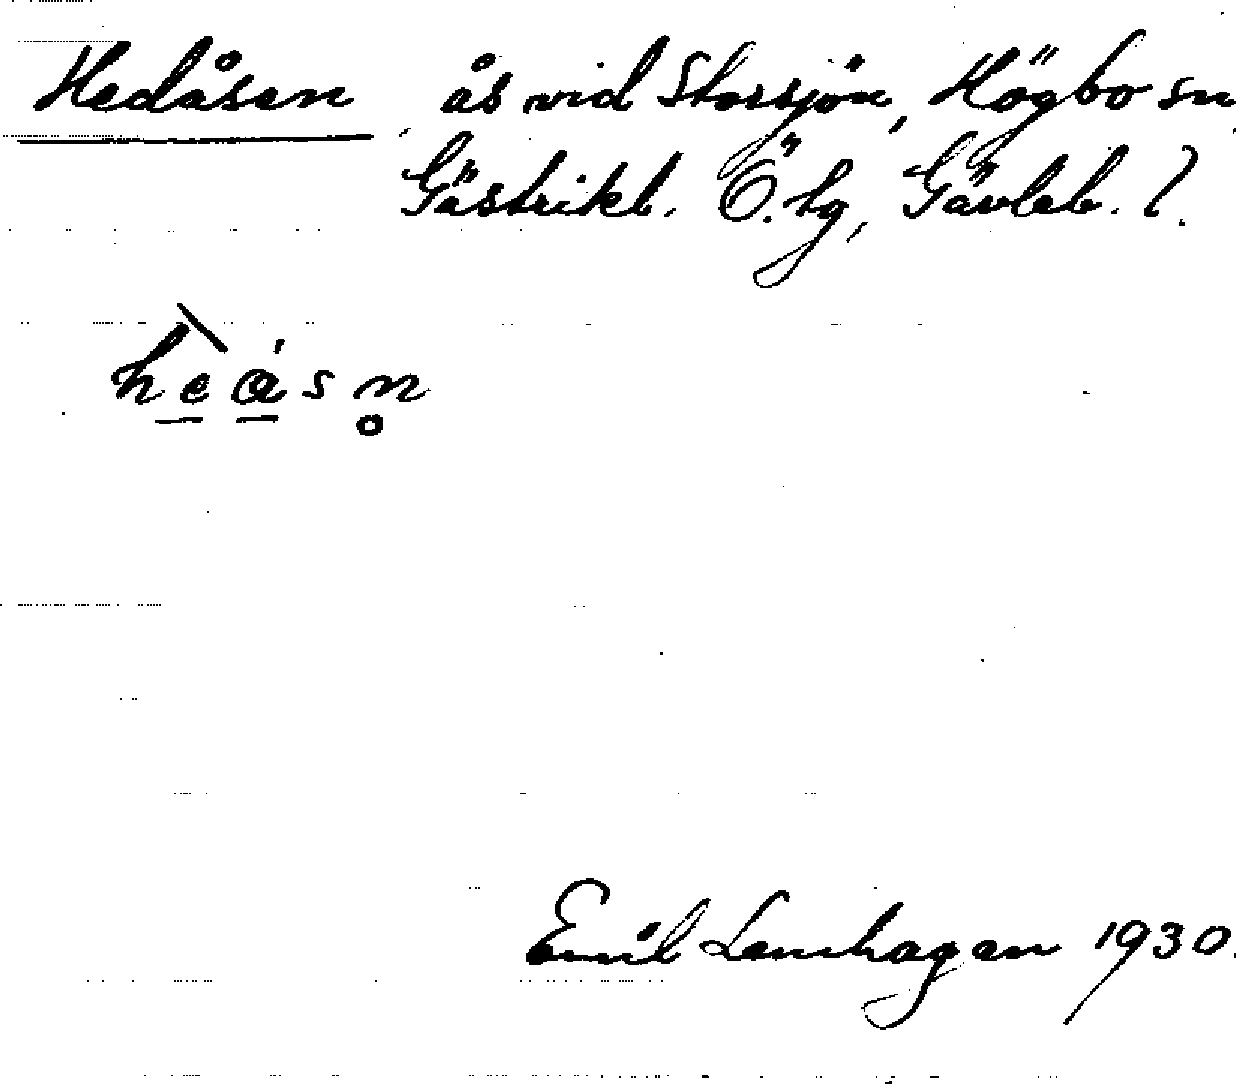 Hedåsen ås vid Storsjön, Högbo sn
Gästrikl. Ö. tg, Gävleb. l.
heåsn
Emil Lenhagen 1930.